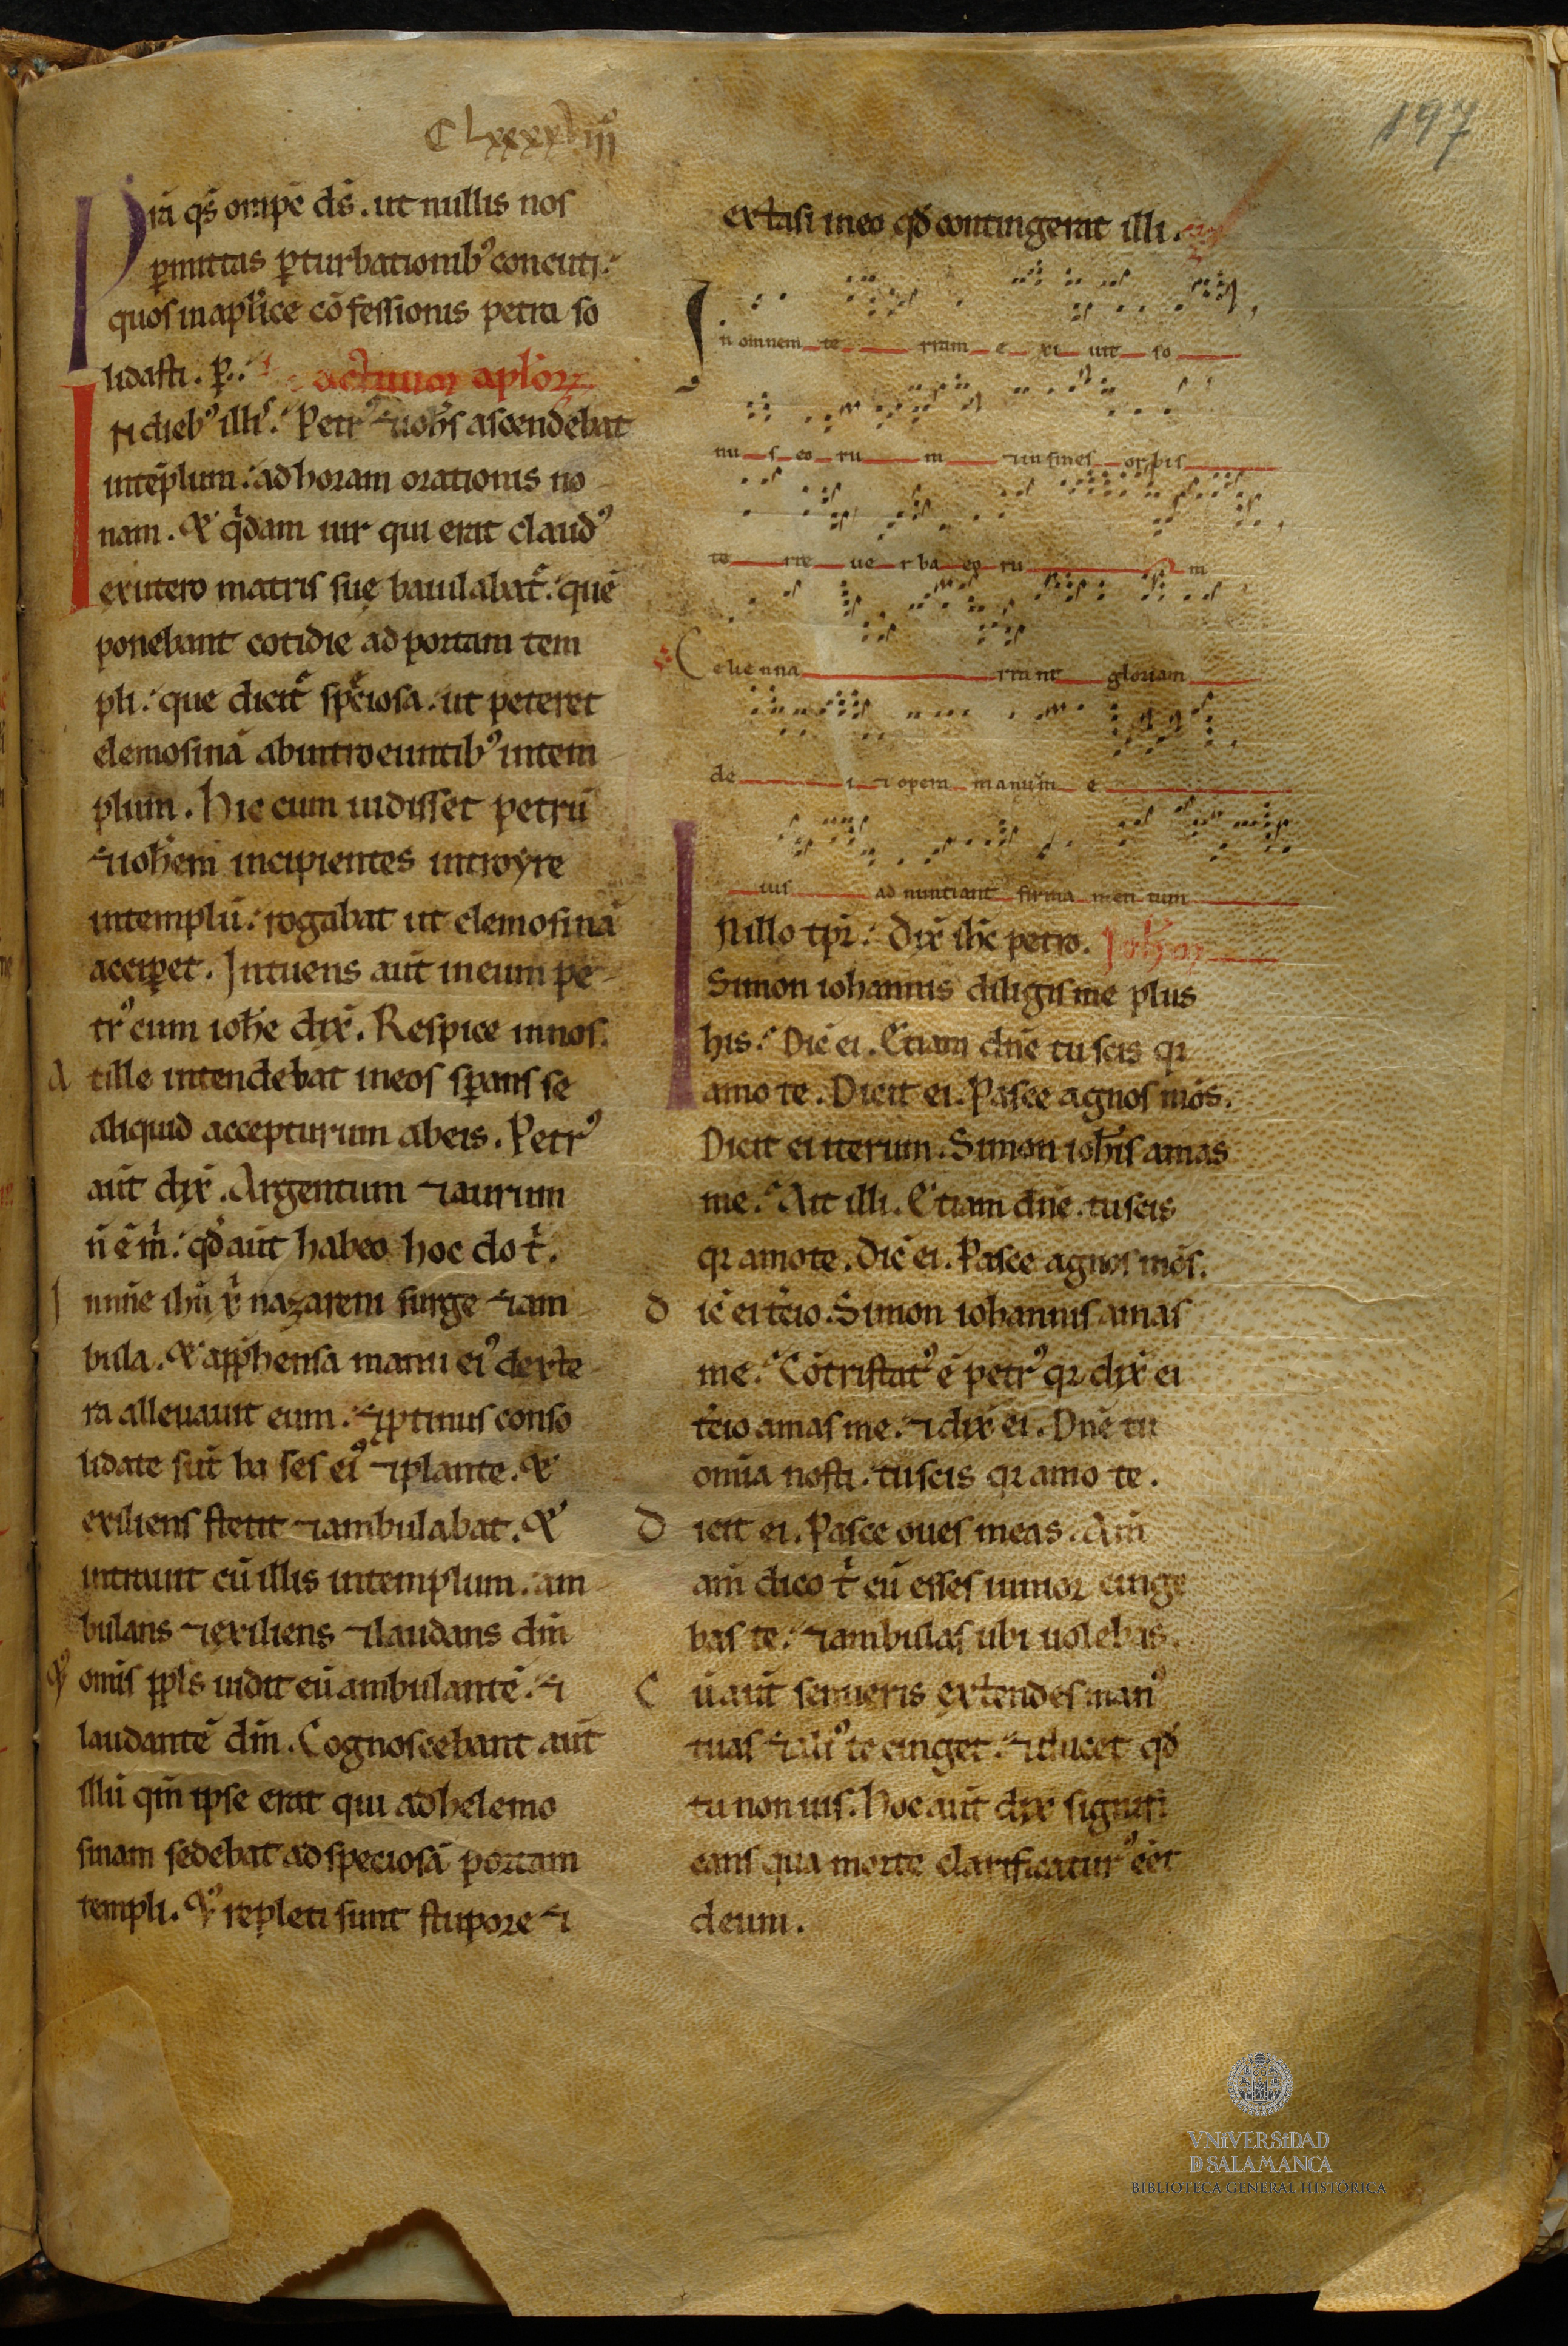 CLxxxxviiiº
197
Pta q̄s om̄pe d̄s. ut nullis nos
ꝑmittas ꝑturbationibꝰ concuti.
quos in apl̄ice cōfessionis petra so
lidasti. ꝑ. actuum aplōꝝ
In diebꝰ illis. Petrꝰ ⁊ ioh̄s ascendebat
in tēplum. ad horam orationis no
nam. Et qͥdam uir qui erat claudꝰ
ex utero matris sue baiulabat᷑. quē
ponebant cotidie ad portam tem
pli. que dicit᷑ speciosa. ut peteret
elemosinā ab introeuntibꝰ in tem
plum. Hic cum uidisset petrū
⁊ ioh̄em incipientes introyre
in templū. rogabat ut elemosinā
acciꝑet. Intuens aūt in eum pe
trꝰ cum ioh̄e dix̄. Respice in nos.
At ille intendebat in eos sꝑans se
aliquid accepturum ab eis. Petrꝰ
aūt dix̄. Argentum ⁊ aurum
n̄ ē m̄. qd̄ aūt habeo hoc do tͥ.
In nn̄e ih̄u xͥ nazareni surge ⁊ am
bula. Et app̄hensa manu eiꝰ dexte
ra alleuauit eum. ⁊ ꝓtinus conso
lidate sūt ba ses eiꝰ ⁊ plante. Et
exiliens stetit ⁊ ambulabat. Et
intrauit cū illis in templum. am
bulans ⁊ exiliens ⁊ laudans dm̄
Et omīs ppl̄s uidit eū ambulantē. ⁊
laudantē dm̄. Cognoscebant aūt
illū qm̄ ipse erat qui ad helemo
sinam sedebat ad speciosā portam
templi. Et repleti sunt stupore ⁊
extasi in eo qd̄ contingerat illi.
In omnem te rram e xi uit so
nu s eo ru m ⁊ in fines orbis
te rre ue r ba eo ru m
Celi e nna rra nt gloriam
de i ⁊ opera manuū e
ius ad nuntiant firma men tum
In illo tp̄r. Dix̄ ih̄c petro. Ioh̄
Simon iohannis diligis me plus
his. Dic̄ ei. Etiam dn̄e tu scis qꝛ
amo te. Dicit ei. Pasce agnos mōs.
Dicit ei iterum. Simon ioh̄is amas
me. Ait illi. Etiam dn̄e. tu scis
qꝛ amo te. Dic̄ ei. Pasce agnos mōs.
Dic̄ ei t̄cio. Simon iohannis amas
me. Cōtristatꝰ ē petrꝰ qꝛ dix̄ ei
t̄cio amas me. ⁊ dix̄ ei. Dn̄e tu
omīa nosti. tu scis qꝛ amo te.
Dicit ei. Pasce oues meas. Am̄
am̄ dico tͥ cū esses iunior cinge
bas te. ⁊ ambulas ubi uolebas.
Cū aūt senueris extendes manꝰ
tuas ⁊ aliꝰ te cinget. ⁊ ducet qd̄
tu non uis. Hoc aūt dix̄ signifi
cans qua morte clarificaturꝰ ēēt
deum.
VNiVERSiDAD
D SALAMANCA
BIBLIOTECA GENERAL HISTÓRICA